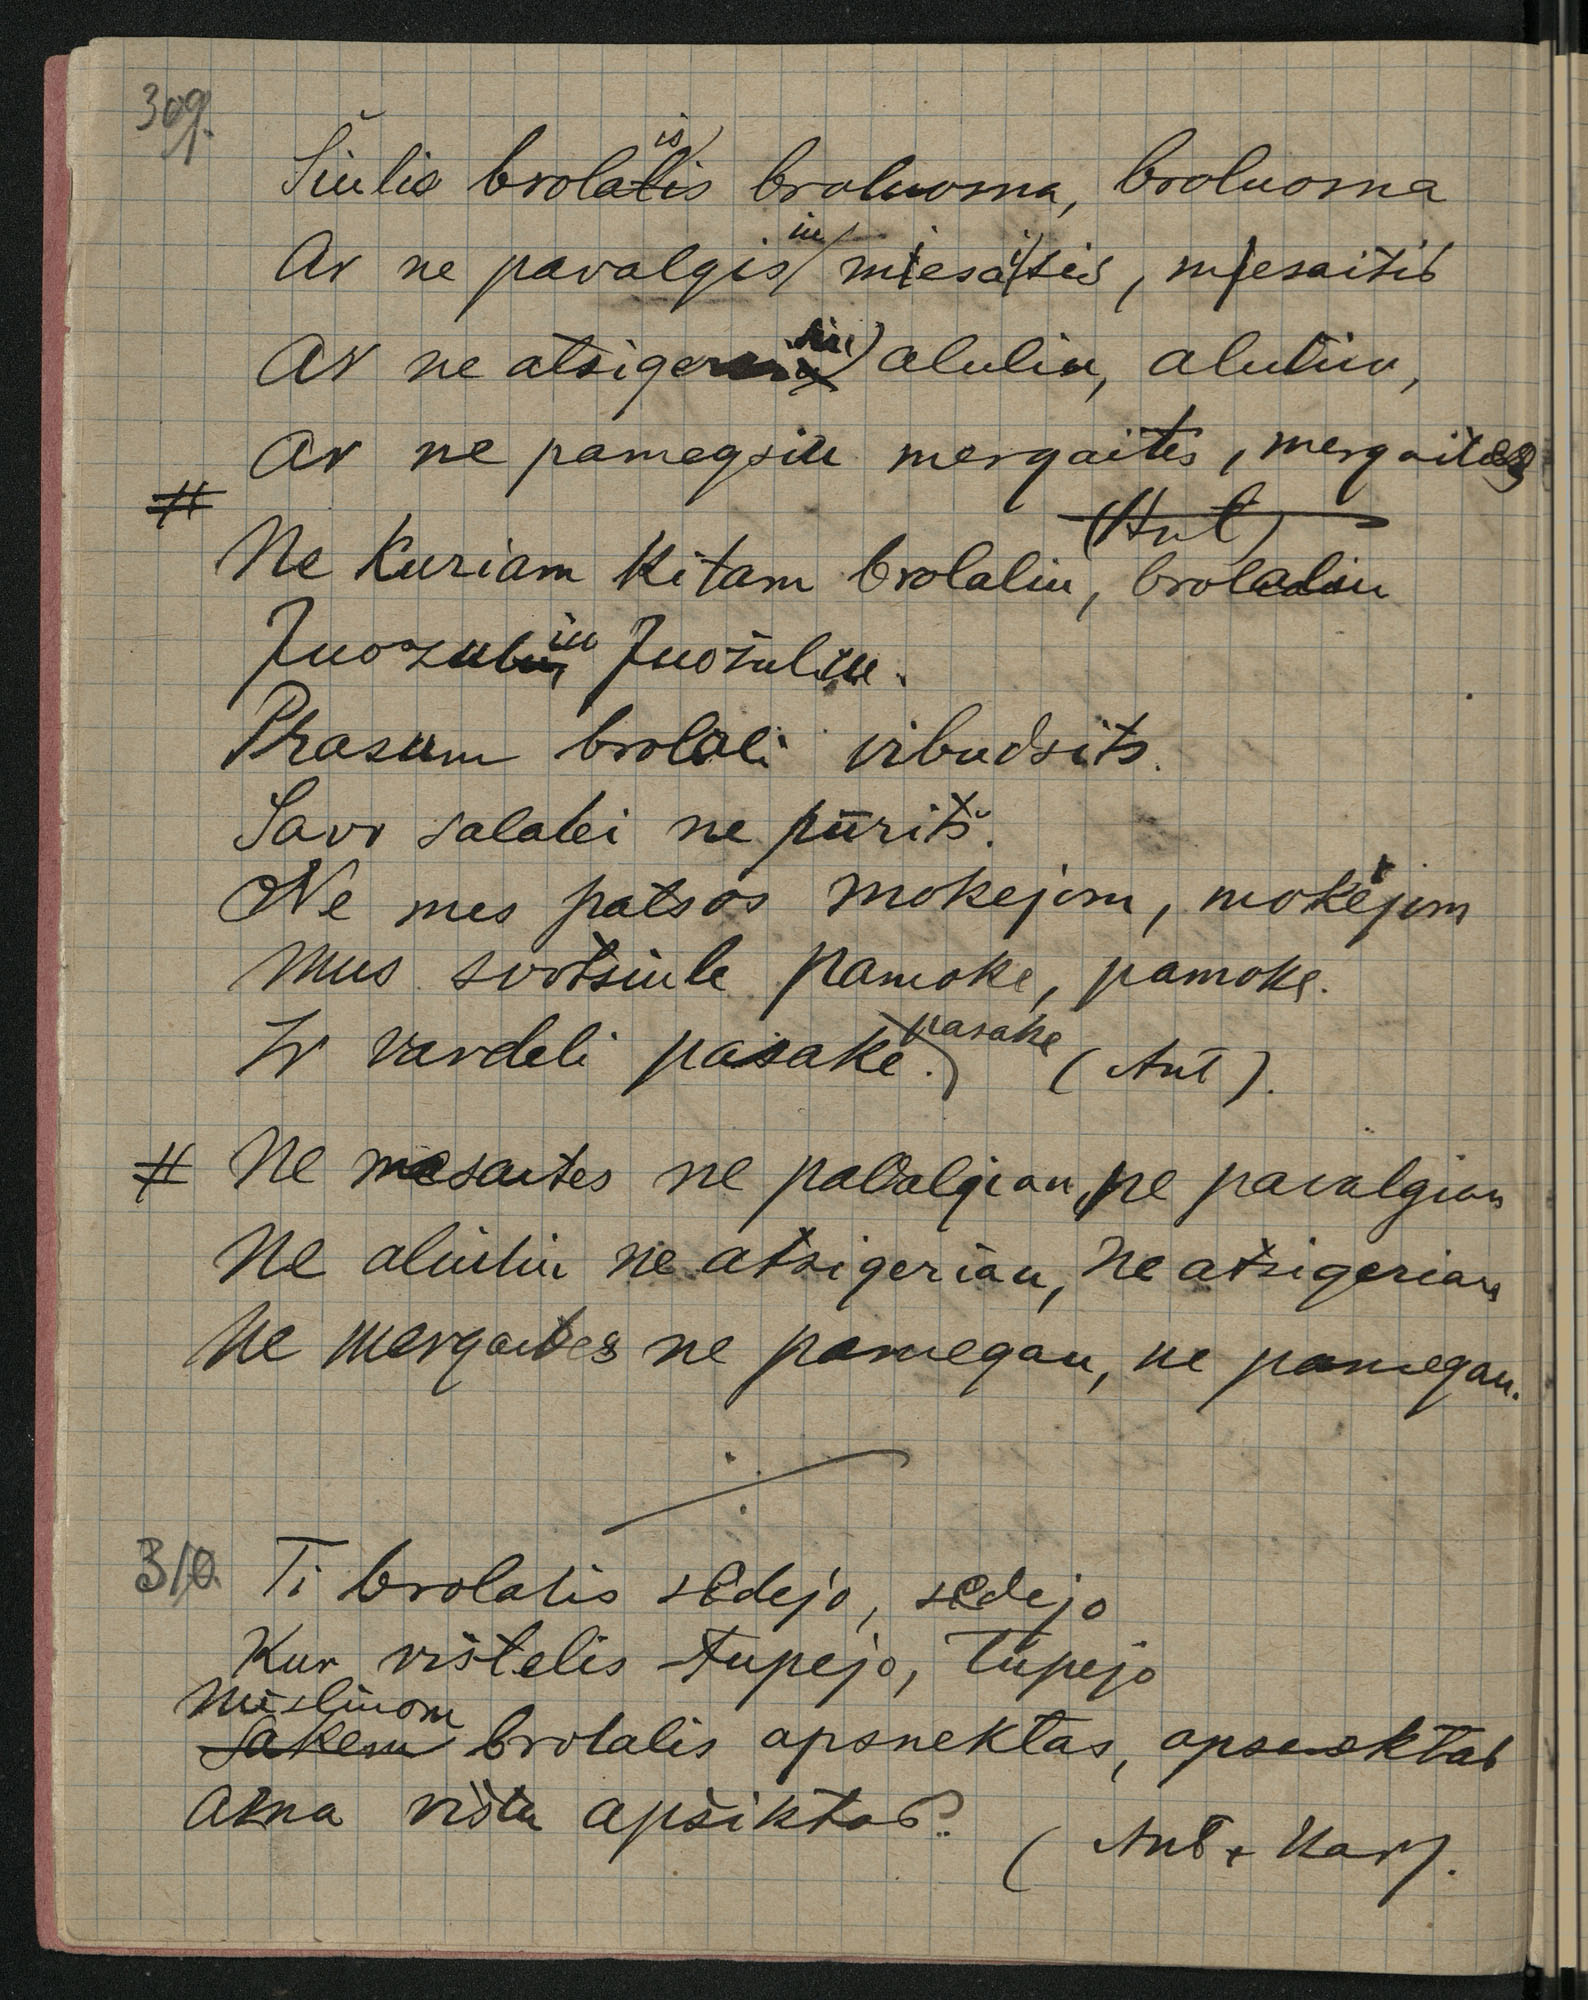 309.
Šiulis brolalis broluoma, broluoma
Ar ne pavalgisiu miesaitis, miesaitis
Ar ne atsigersiu aluliu, alutiu,
Ar ne pamegsiu mergaites, mergaites
#
(Ant)
Ne kuriam kitam brolaliu, brolaliu
Juozuliu Juozuliu.
Prasum brolali
Savo salatei ne
Ne mes patsos mokejom, mokejom
Mus svotsiule pamoke, pamoke.
Ir vardeli pasake. pasake (Ant).
# Ne mesaites ne pavalgiau, ne pavalgiau
Ne aliutiu ne atsigeriau, ne atsigeriau
Ne mergaites ne pamegau, ne pamegau.
310 Ti brolalis sedejo, sedejo
Kur vištelis tupejo, tupejo
Mislinom
Sakem brolalis apsnektas, apsnektas
Asna vištu apšiktas?
(Ant + Kar).